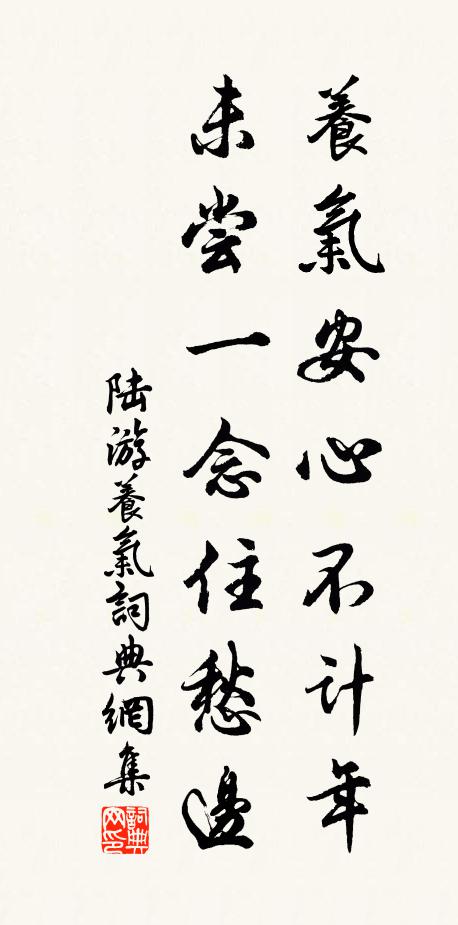 養氣安心不計年
未尝一念住愁邊
陆游養氣詞典網集
詞典网印